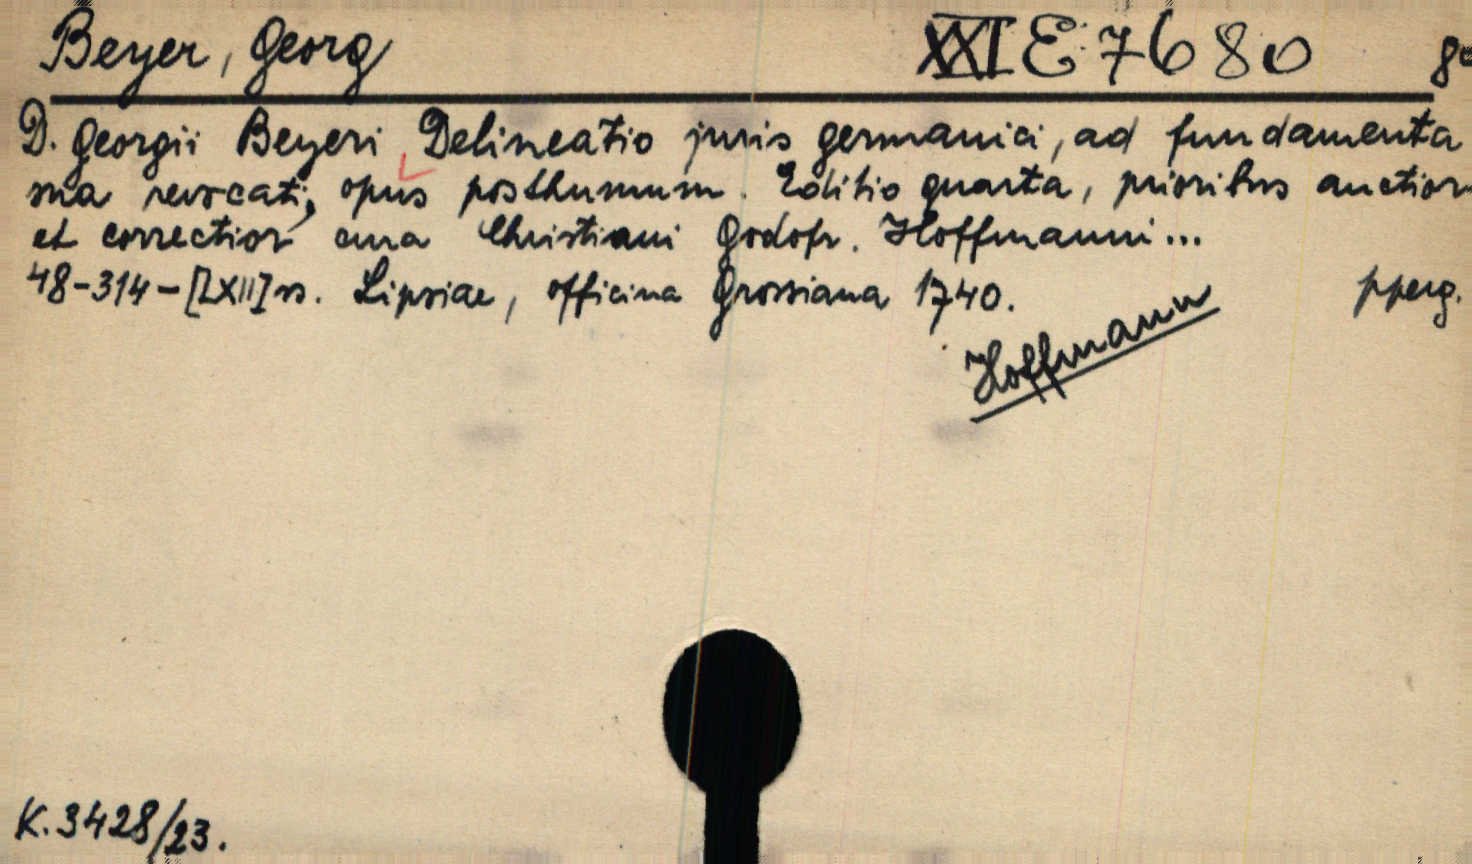 Beyer, Georg XXI E 7680 8°
D. Georgii Beyeri Delineatio juris germanici, ad fundamenta
sua revocati, opus posthumum. Editio quarta, prioribus auctior
et correctior cura Christiani Godofr. Hoffmanni...
48-314-[LXII] ss. Lipsiae, officina Grossiana 1740. pperg.
Hoffmann
K. 3428/23.